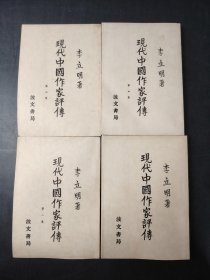 李立明著
現代中國作家評傳
第一集
波文書局
李立明著
現代中國作家評傳
波文書局
李立明著
現代中國作家評傳
第一集
波文書局
李立明著
現代中國作家評傳
波文書局